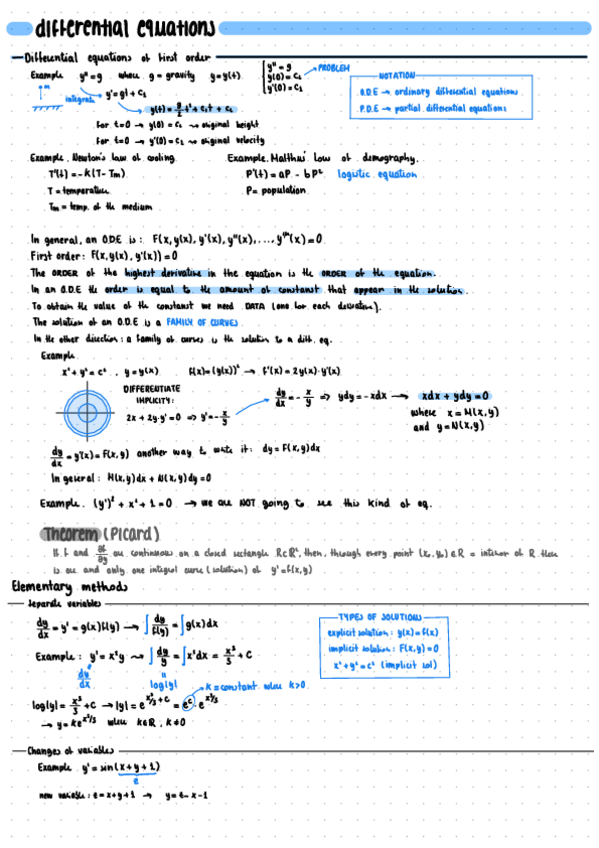 differential equations
Differential equations of first order
Example y'' = g where g = gravity y = y(t) { y'' = g y(0) = c₂ y'(0) = c₁ → PROBLEM
integrate → y' = gt + c₁
y(t) = g/2 t² + c₁t + c₂
For t=0 → y(0) = c₂ → original height
For t=0 → y'(0) = c₁ → original velocity
NOTATION
O.D.E → ordinary differential equations
P.D.E → partial differential equations
Example. Newton's law of cooling
T'(t) = -k(T - Tm)
T = temperature
Tm = temp. of the medium
Example. Malthus' Law of demography.
P'(t) = aP - bP² logistic equation
P = population
In general, an O.D.E is: F(x, y(x), y'(x), y''(x), ..., y⁽ⁿ⁾(x)) = 0
First order: F(x, y(x), y'(x)) = 0
The ORDER of the highest derivative in the equation is the ORDER of the equation.
In an O.D.E the order is equal to the amount of constant that appear in the solution.
To obtain the value of the constant we need DATA (one for each derivative).
The solution of an O.D.E is a FAMILY OF CURVES
In the other direction: a family of curves is the solution to a diff. eq.
Example.
x² + y² = c², y = y(x) F(x) = (y(x))² → F'(x) = 2y(x)·y'(x)
DIFFERENTIATE
IMPLICITY:
2x + 2y·y' = 0 ⇒ y' = -x/y
dy/dx = -x/y ⇒ ydy = -xdx → xdx + ydy = 0
where x = M(x,y)
and y = N(x,y)
dy/dx = y'(x) = F(x,y) another way to write it: dy = F(x,y)dx
In general: M(x,y)dx + N(x,y)dy = 0
Example. (y')² + x² + 1 = 0 → we are NOT going to see this kind of eq.
Theorem (Picard)
If f and ∂f/∂y are continuous on a closed rectangle R⊂ℝ², then, through every point (x₀, y₀) ∈ R = interior of R there
is one and only one integral curve (solution) of y' = f(x,y)
Elementary methods
Separate variables
dy/dx = y' = g(x)f(y) → ∫ dy/f(y) = ∫ g(x)dx
Example: y' = x²y → ∫ dy/y = ∫ x²dx = x³/3 + C
dy/dx
log|y|
log|y| = x³/3 + C → |y| = e^(x³/3 + C) = e^C · e^(x³/3)
k = constant where k>0
→ y = ke^(x³/3) where k∈ℝ, k≠0
TYPES OF SOLUTIONS
explicit solution: y(x) = f(x)
implicit solution: F(x,y) = 0
x² + y² = c² (implicit sol)
Changes of variables
Example y' = sin(x + y + 1)
t
new variable: t = x + y + 1 → y = t - x - 1